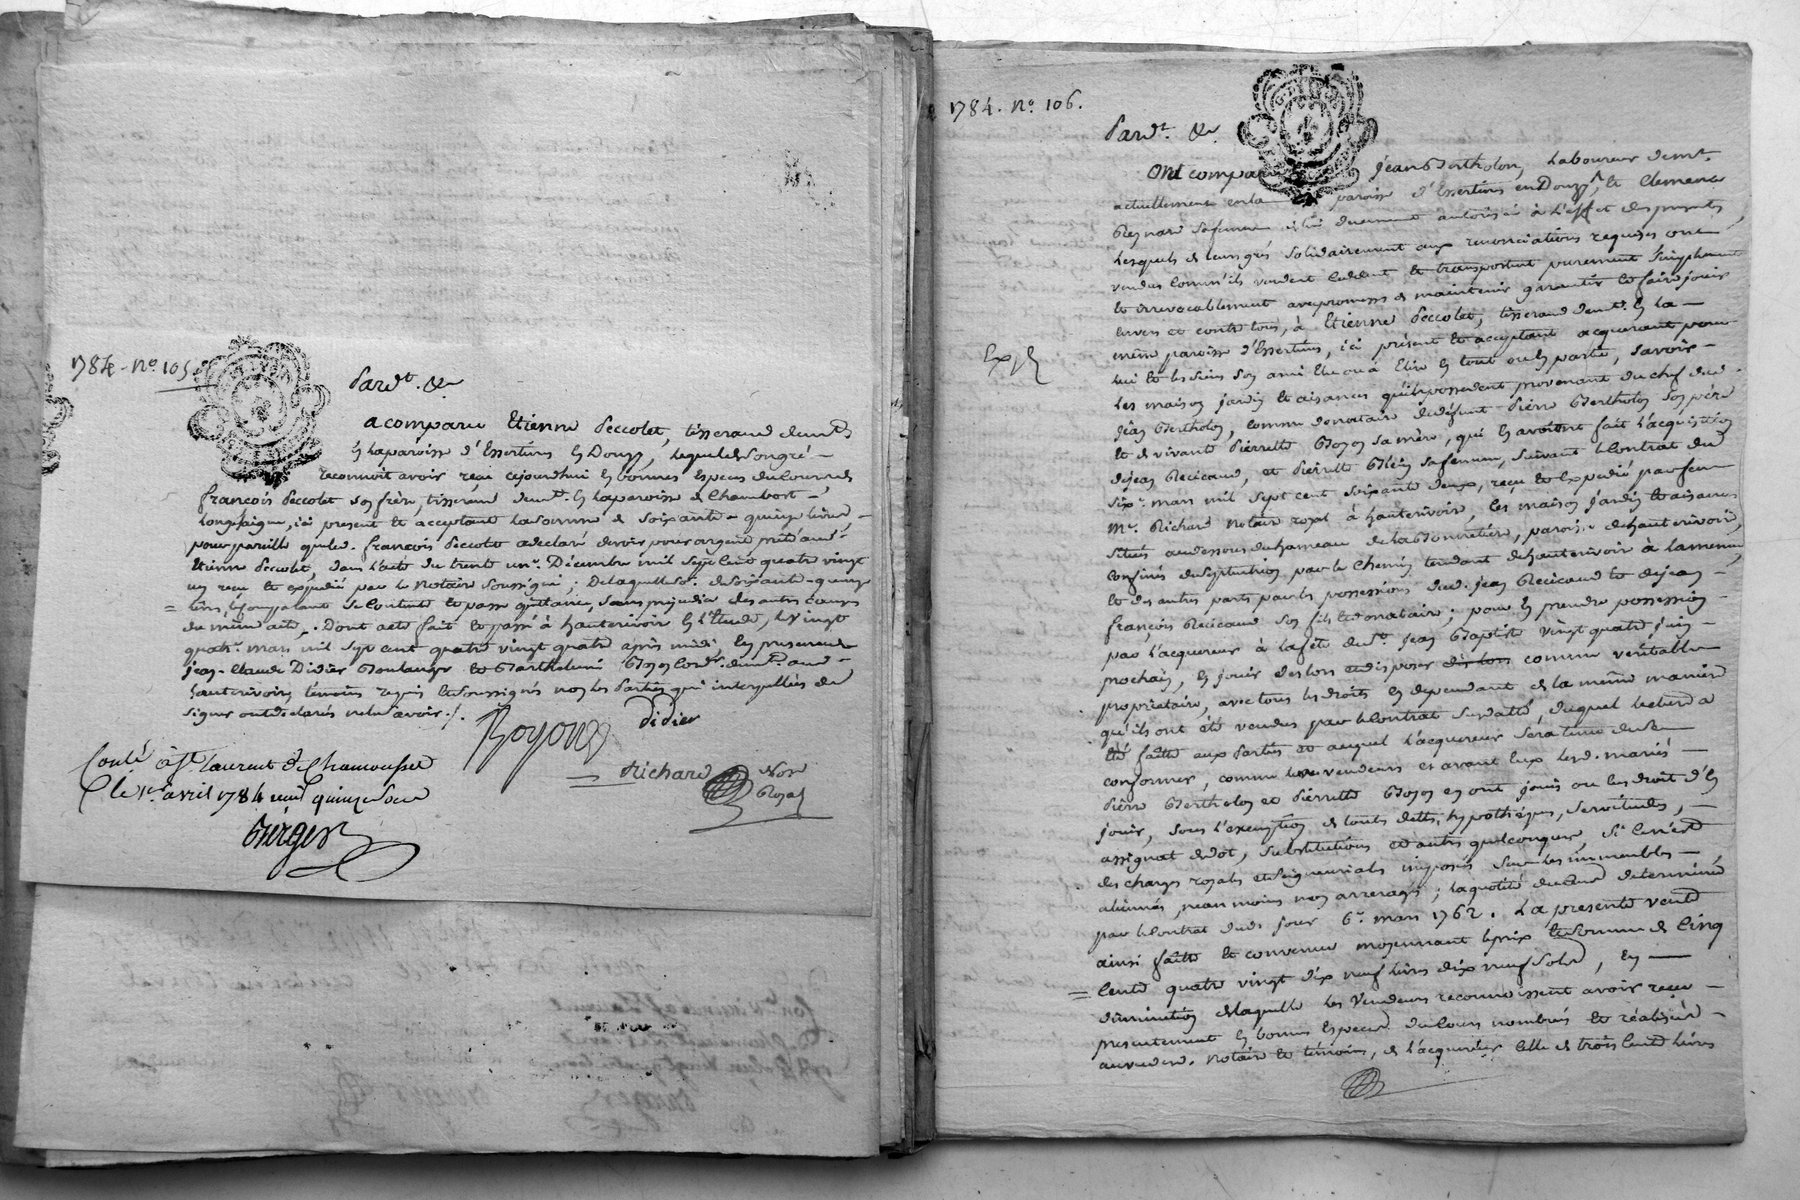 1784. n.º 105
Pardt. &a
a comparu Etienne Peccolet, tisserand demt.
en la paroisse d'Essertines en Donzy, lequel de son gré
reconnoit avoir reçu cejourd'hui en bonnes especes du cours de
françois Peccolet son frère, tisserand demt. en la paroisse de Chambost
Longesaigne, ici present et acceptant la somme de soixante quinze livres
pour pareille que led. françois Peccolet a declaré devoir pour argent prêté aud.
Etienne Peccolet, dans l'acte du trente un Décembre mil sept cent quatre vingt
un reçu et expedié par le Notaire soussigné; De laquelle so. de soixante quinze
livres, le comparant se contente et passe quittance, sans prejudice des autres causes
du même acte. Dont acte fait et passé à hauterivoire en l'Etude, le vingt
quatre mars mil sept cent quatre vingt quatre après midi, en presence de
Jean-Claude Didier Boulanger et Barthelemi Boyon cord.r demt. aud.
hauterivoire, témoins requis et soussignés non les Parties qui interpellées de
signer ont declaré ne le savoir ./.
Boyon Didier
Richard Not.
Royal
Conlé à St. Laurent de Chamousset
le 1er avril 1784 reçu quinze sous
Berger
1784. n.º 106.
Pardt. &a
Ont comparu Jean Bertholon, Laboureur demt.
actuellement en la paroisse d'Essertines en Donzy, et Clemence
Reynard sa femme de lui duement autorisée à l'effet des presentes,
Lesquels de leurs grés solidairement aux renonciations requises ont
vendu comm'ils vendent cedent et transportent purement simplement
et irrevocablement avec promesse de maintenir garantir et faire jouir
envers et contre tous, à Etienne Peccolet, tisserand demt. en la
même paroisse d'Essertines, ici présent et acceptant acquerant pour
Exp.
lui et les siens son ami elu ou à elire en tout ou en partie, savoir
Les maison jardin et aisances qu'ils possedent provenant du chef dud.
Jean Bertholon, comme donataire du défunt Pierre Bertholon son père
et de vivant Pierrette Boyon sa mère, qui en avoient fait l'acquisition
de Jean Recicaud, et Pierrette Blein sa femme, suivant le Contrat du
six mars mil sept cent soixante deux, reçu et expedié par feu
Me. Richard Notaire royal à hauterivoire, les maison jardin et aisances
situés au dessous du hameau de la Bonnetière, paroisse de hauterivoire,
confinés du septentrion par le chemin tendant de hauterivoire à la menue,
et des autres parts par les possessions dud. Jean Recicaud et de Jean
françois Recicaud son fils et donataire; pour en prendre possession
par l'acquereur à la fête de St. Jean Baptiste vingt quatre juin
prochain, en jouir des lors et disposer des lors comme veritable
propriétaire, avec tous les droits en dependant de la même manière
qu'ils ont été vendus par le Contrat susdatté, duquel lecture a
été faitte aux Parties et auquel l'acquereur sera tenu de se
conformer, comme les vendeurs et avant eux lesd. mariés
Pierre Bertholon et Pierrette Boyon en ont joui ou eu droit d'en
jouir, sous l'exemption de toutes dettes, hypothèques, servitudes,
assignat de dot, substitutions et autres quelconques, si ce n'est
des charges royales et seigneuriales imposées sur les immeubles
alienés, neanmoins non arreragés; la quotité du cens determinée
par le Contrat dud. jour 6. mars 1762. La presente vente
ainsi faitte et convenue moyennant le prix et somme de Cinq
Cents quatre vingt dix neuf livres dix neuf sols, en
diminution de laquelle les vendeurs reconnoissent avoir reçu
presentement en bonnes especes du cours nombrées et réalisées
au vu desd. Notaire et témoins, de l'acquereur celle de trois cents livres